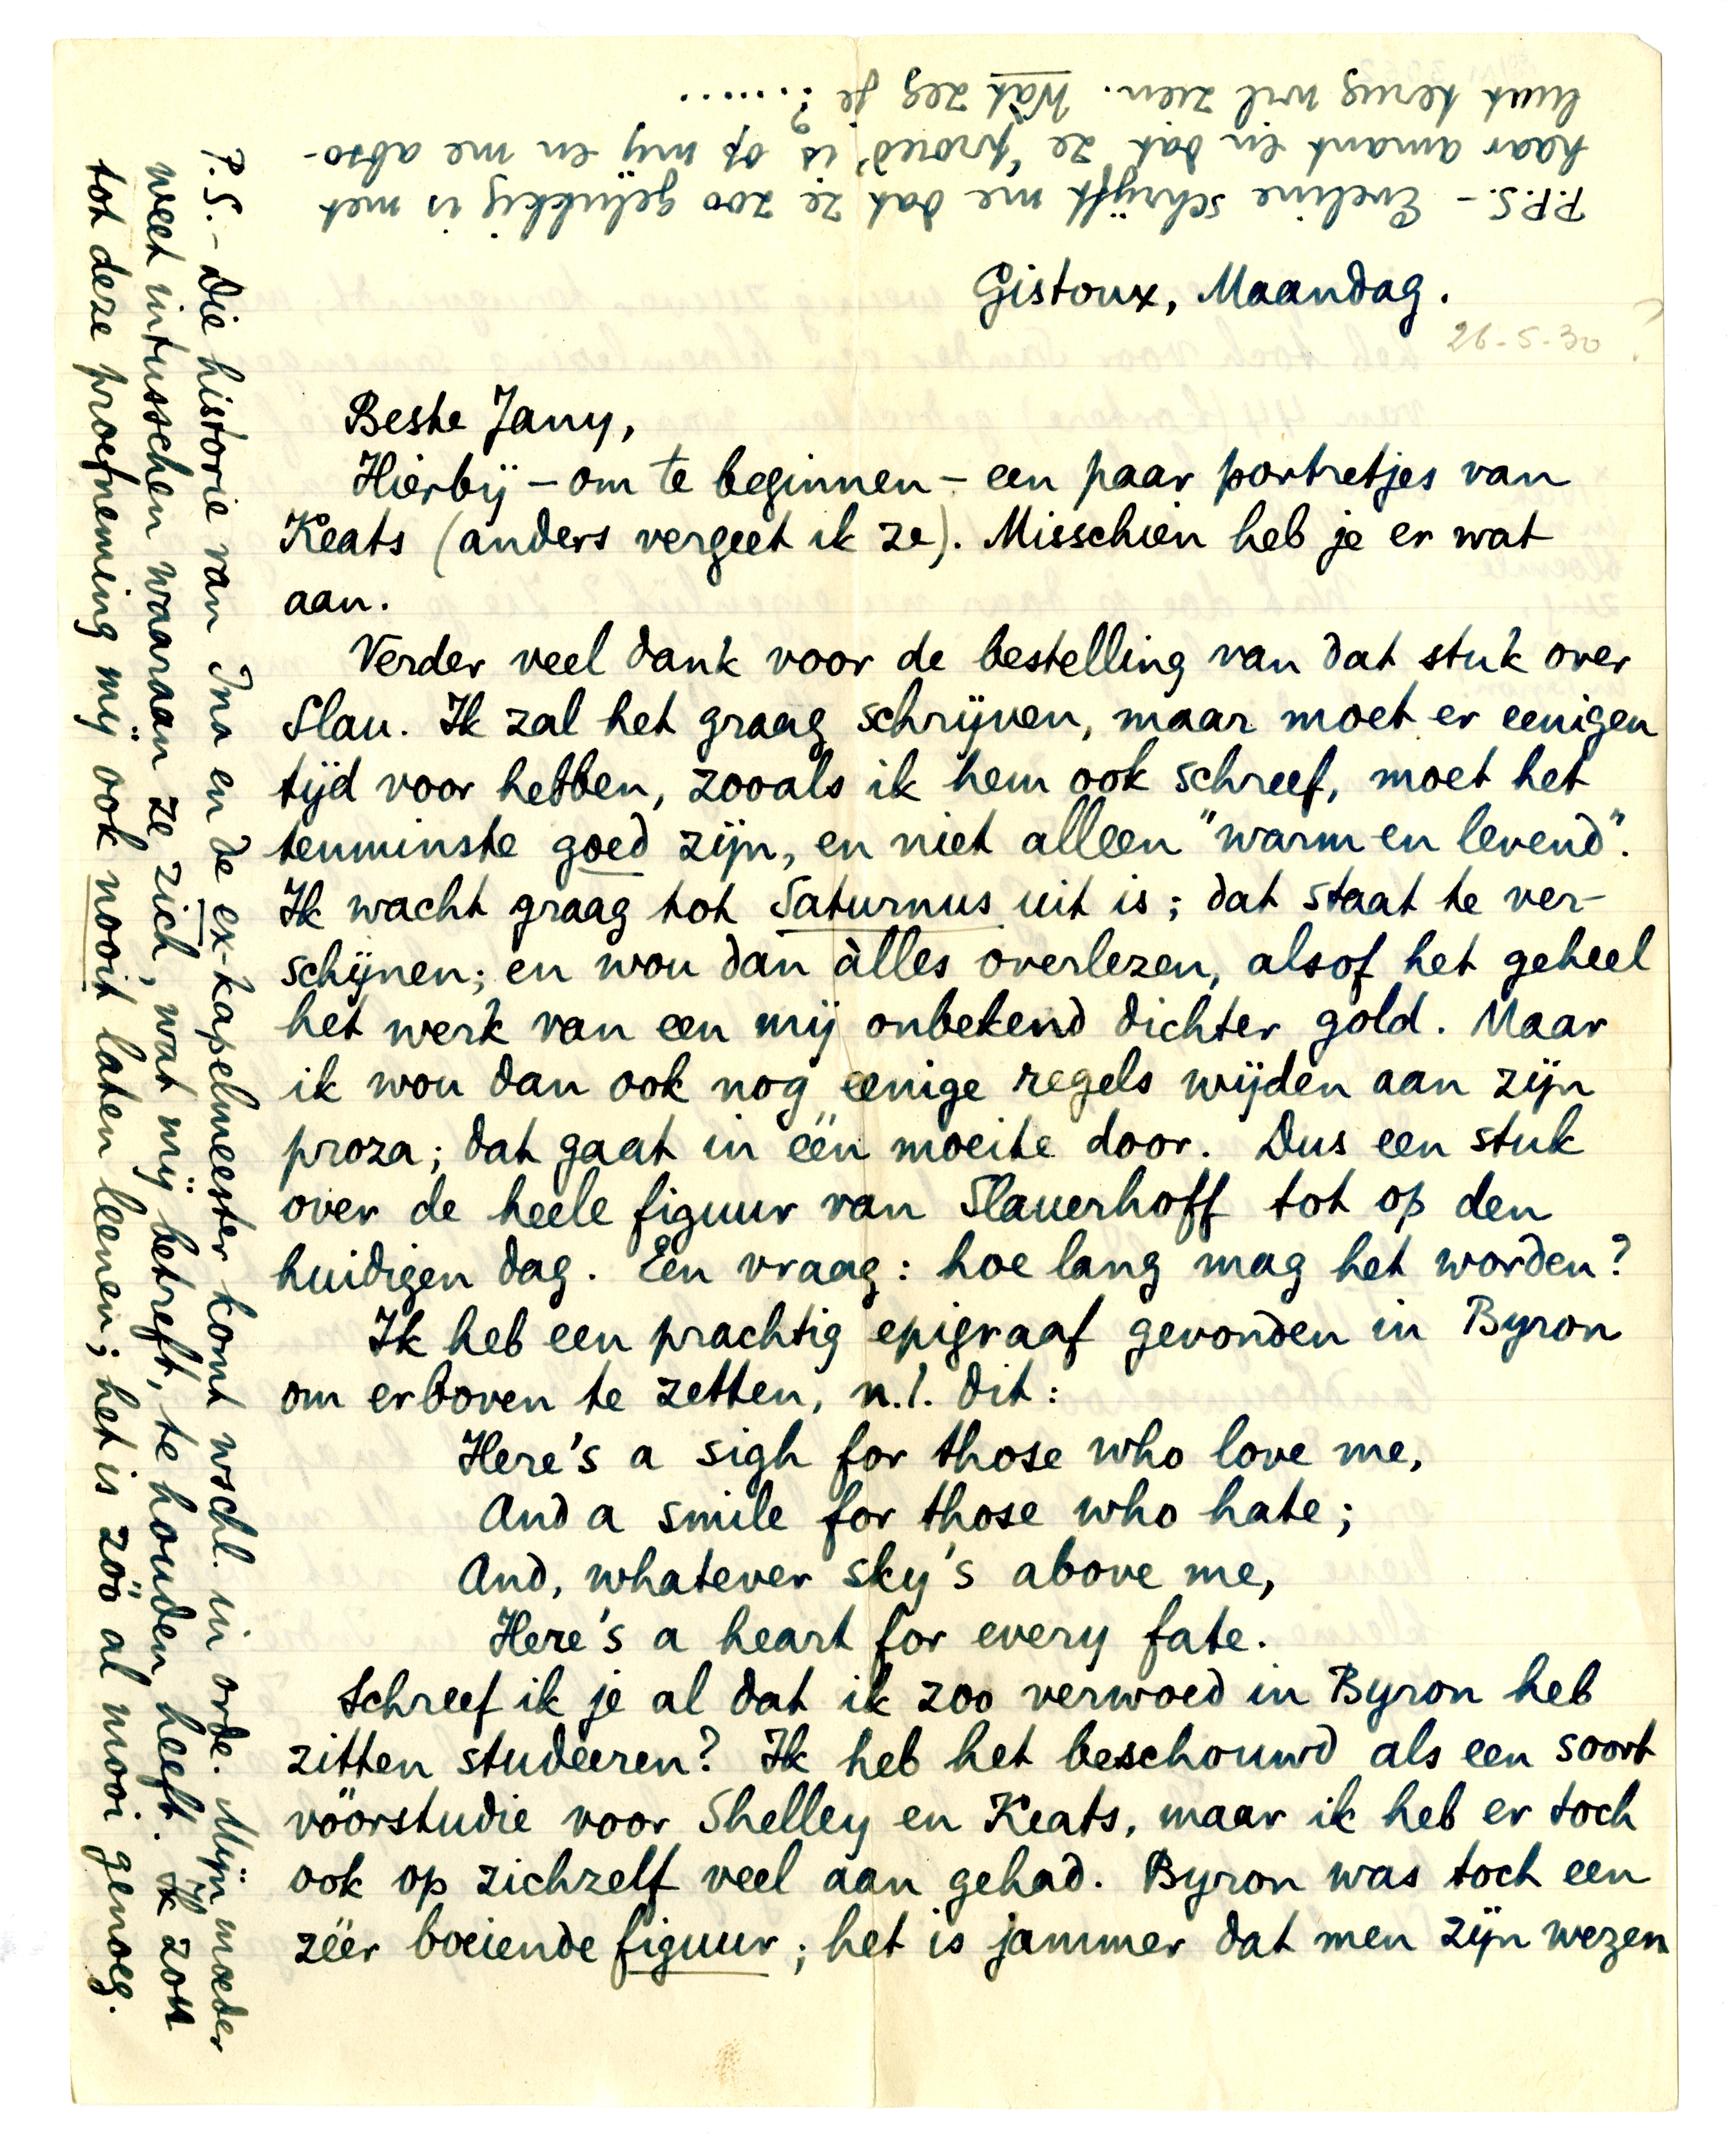 Gistoux, Maandag.
26-5-30
Beste Jany,
Hierbij – om te beginnen – een paar portretjes van
Keats (anders vergeet ik ze). Misschien heb je er wat
aan.
Verder veel dank voor de bestelling van dat stuk over
Slau. Ik zal het graag schrijven, maar moet er eenigen
tijd voor hebben, zooals ik hem ook schreef, moet het
tenminste goed zijn, en niet alleen "warm en levend".
Ik wacht graag tot Saturnus uit is; dat staat te ver-
schijnen; en wou dan àlles overlezen, alsof het geheel
het werk van een mij onbekend dichter gold. Maar
ik wou dan ook nog eenige regels wijden aan zijn
proza; dat gaat in één moeite door. Dus een stuk
over de heele figuur van Slauerhoff tot op den
huidigen dag. Eén vraag: hoe lang mag het worden?
Ik heb een prachtig epigraaf gevonden in Byron
om erboven te zetten, n.l. dit:
Here's a sigh for those who love me,
And a smile for those who hate;
And, whatever sky's above me,
Here's a heart for every fate.
Schreef ik je al dat ik zoo verwoed in Byron heb
zitten studeeren? Ik heb het beschouwd als een soort
vóórstudie voor Shelley en Keats, maar ik heb er toch
ook op zichzelf veel aan gehad. Byron was toch een
zéér boeiende figuur; het is jammer dat men zijn wezen
P.S. – Die historie van Ina en de ex-kapelmeester komt wschl. in orde. Mijn moeder
weet intusschen waaraan ze zich, wat mij betreft, te houden heeft. Ik zou
tot deze proefneming mij ook nooit laten leenen; het is zóó al mooi genoeg.
P.P.S. – Eveline schrijft me dat ze zoo gelukkig is met
haar amant en dat ze "proud" is op mij en me abso-
luut terug wil zien. Wat zeg je ?.......